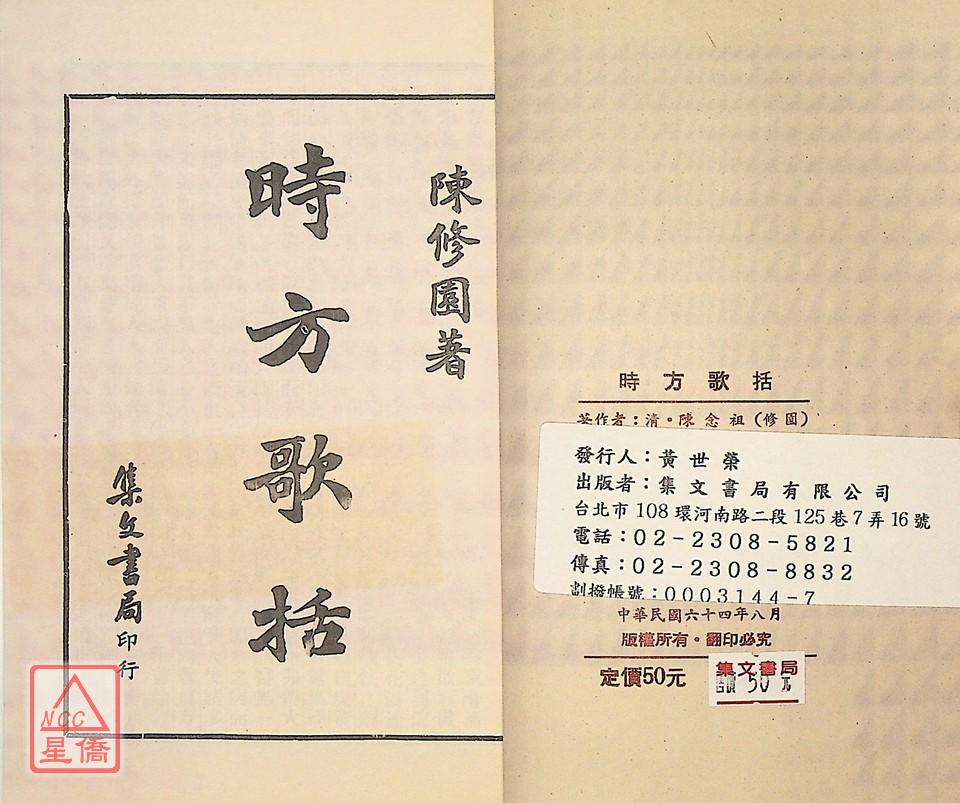 陳修園著
時方歌括
集文書局印行
NCC
星僑
時方歌括
著作者：清。陳念祖(修園)
發行人：黃世榮
出版者：集文書局有限公司
台北市108環河南路二段125巷7弄16號
電話：02-2308-5821
傳真：02-2308-8832
劃撥帳號：0003144-7
中華民國六十四年八月
版權所有。翻印必究
定價50元
集文書局
50元